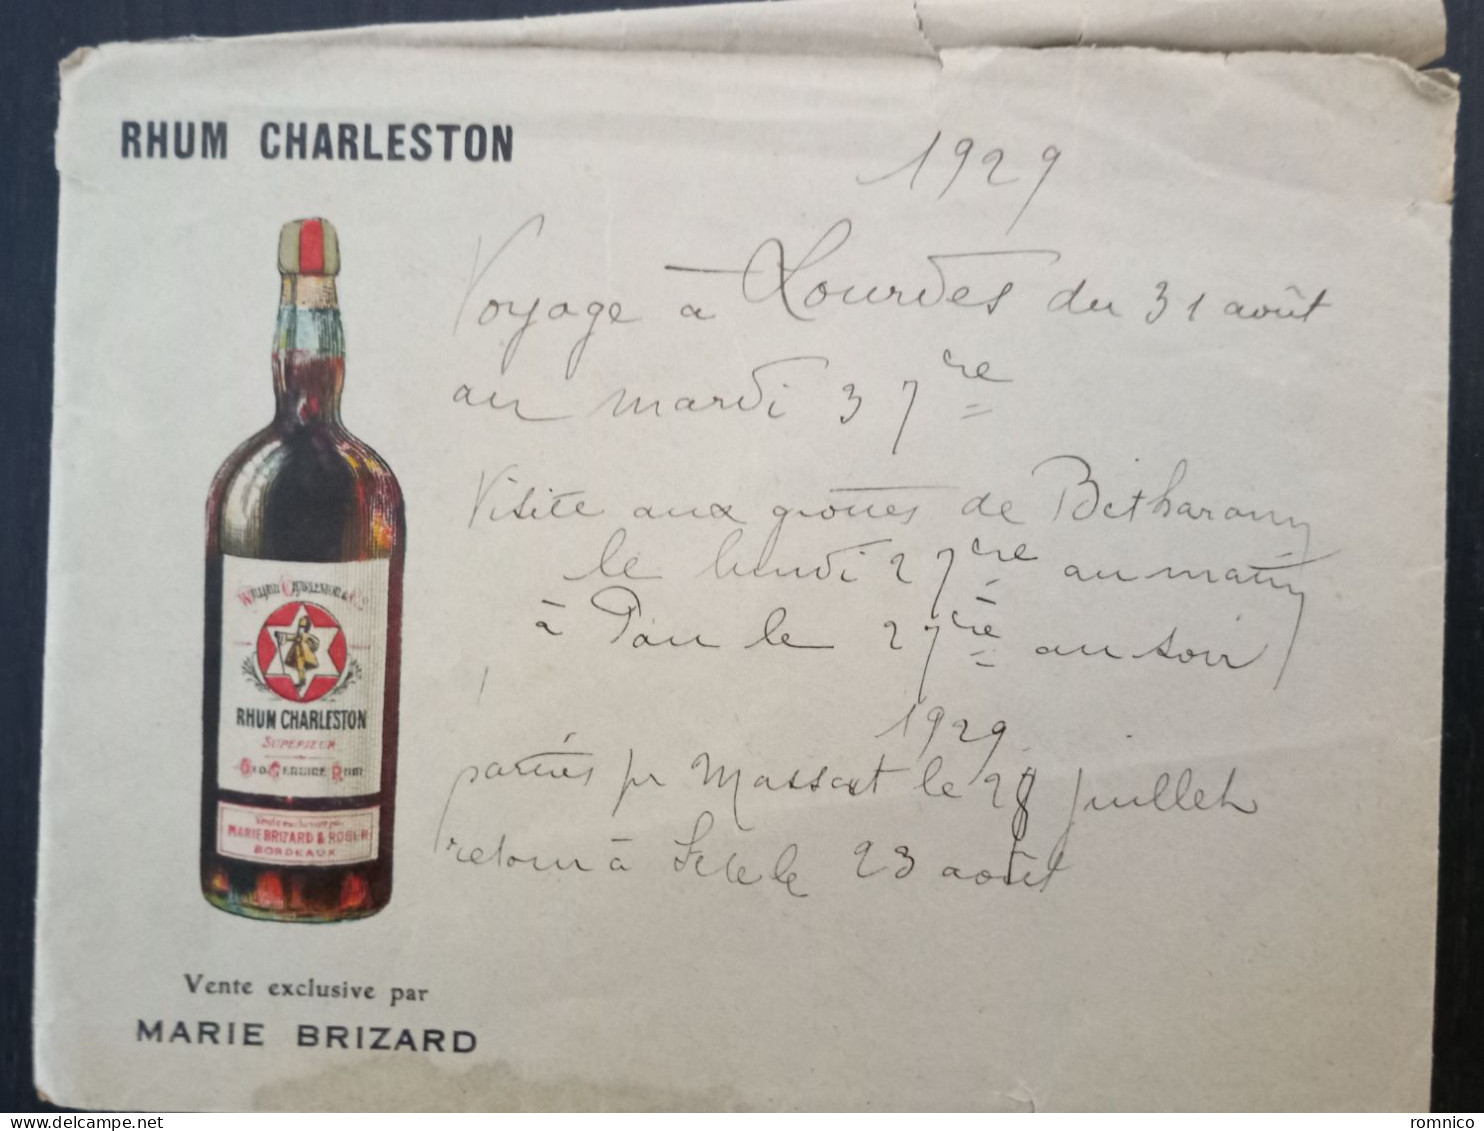 RHUM CHARLESTON
1929
Voyage à Lourdes du 31 août
au mardi 3 7bre
Visite aux grottes de Bétharam
le lundi 2 7bre au matin
à Pau le 2 7bre au soir
1929
parties pr Massat le 28 juillet
retour à le 23 août
WILLIAM CHARLESTON & Co
RHUM CHARLESTON
SUPÉRIEUR
OLD GENUINE RUM
Vente exclusive par
MARIE BRIZARD & ROGER
BORDEAUX
Vente exclusive par
MARIE BRIZARD
romnico